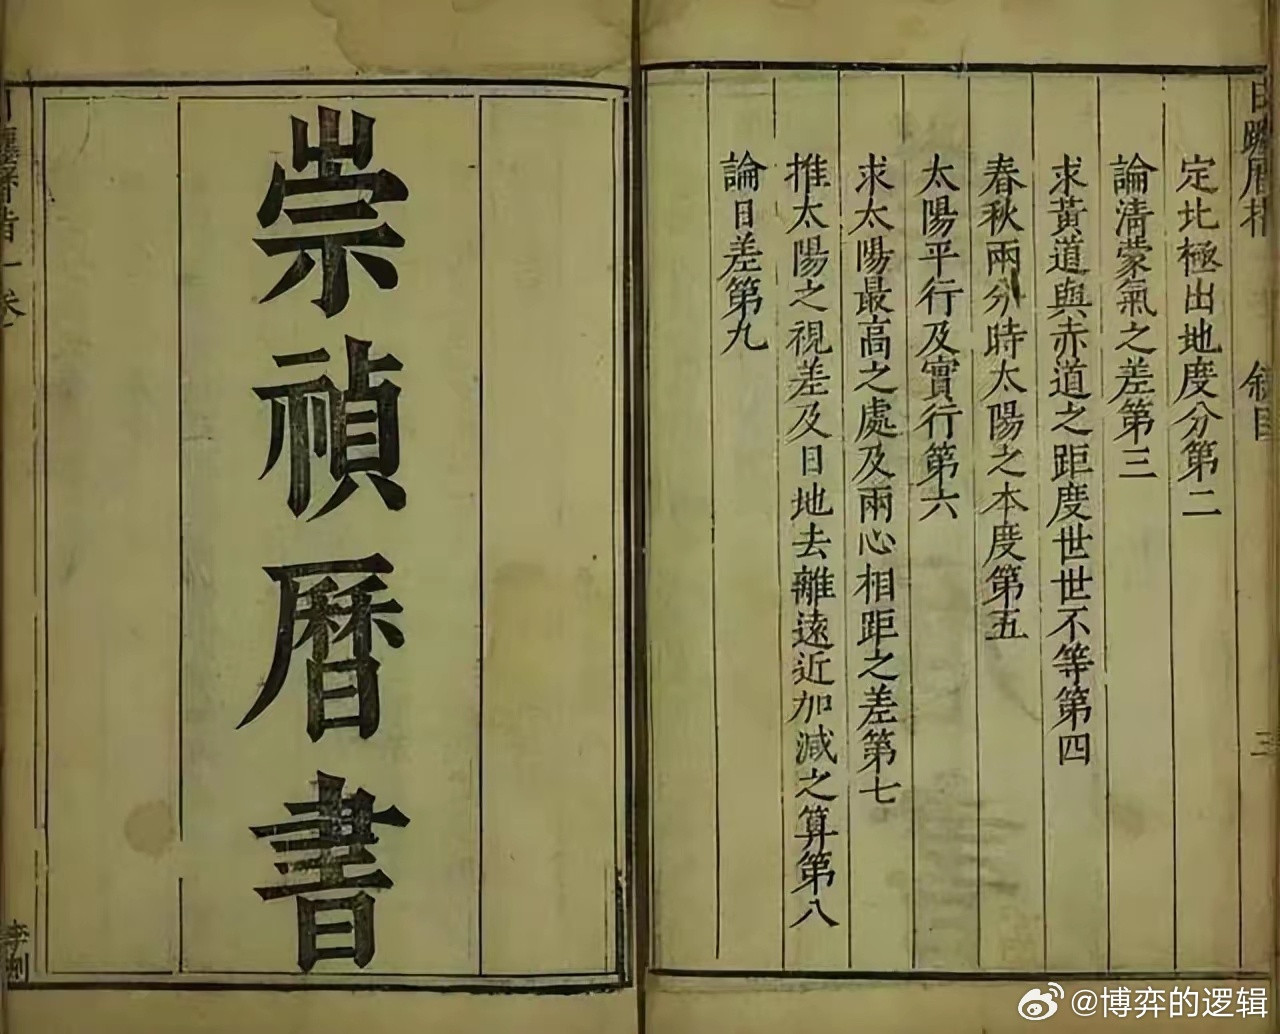 日躔曆指
叙目
三
定北極出地度分第二
論清蒙氣之差第三
求黃道與赤道之距度世世不等第四
春秋兩分時太陽之本度第五
太陽平行及實行第六
求太陽最高之處及兩心相距之差第七
推太陽之視差及日地去離遠近加減之算第八
論日差第九
崇禎曆書
@博弈的逻辑